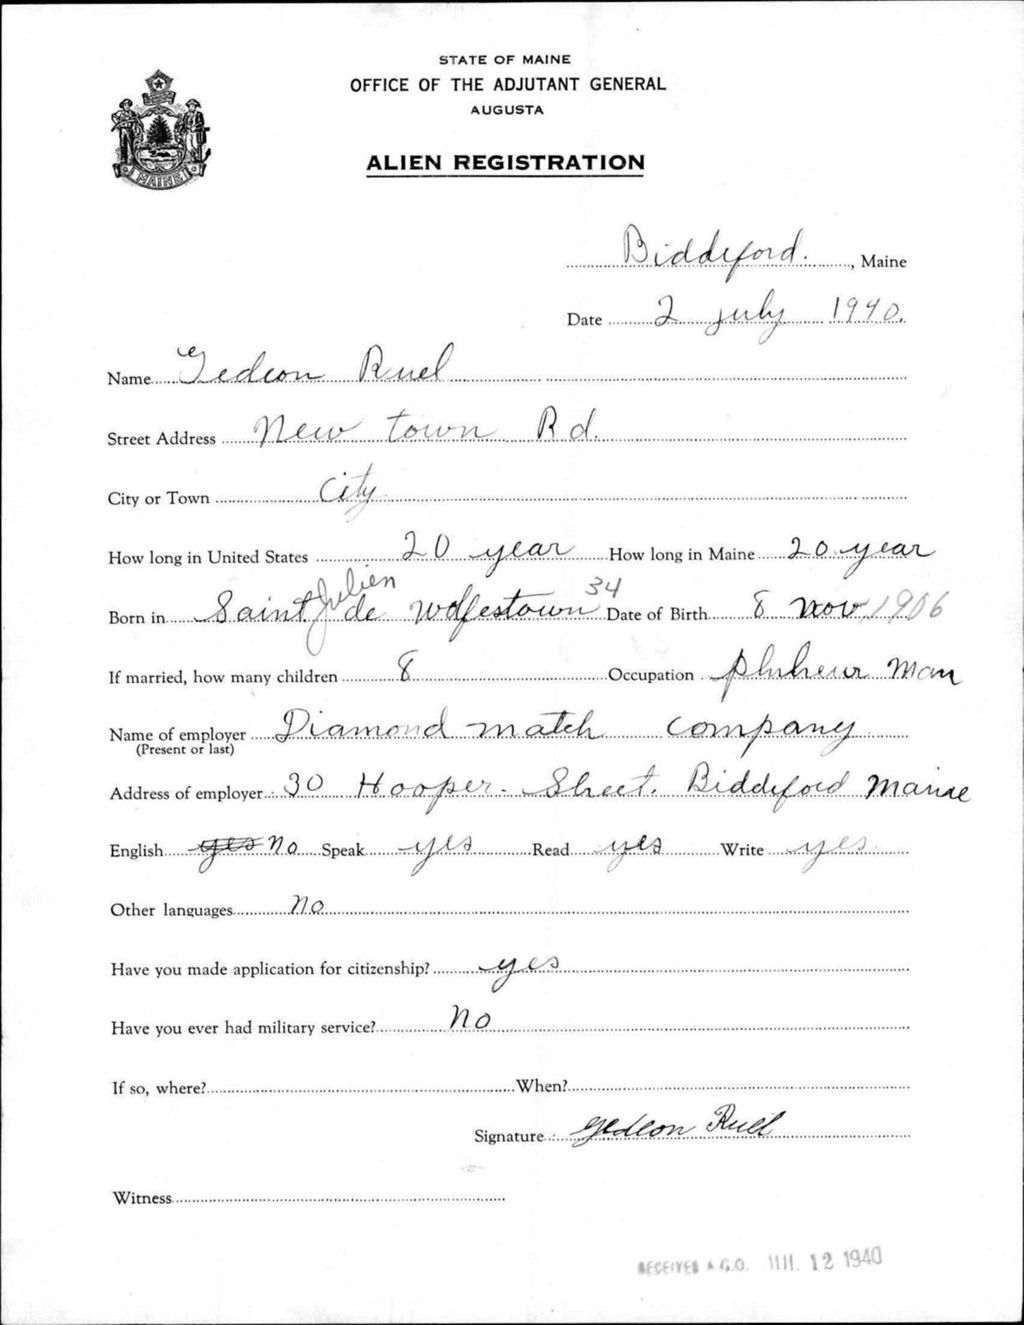 STATE OF MAINE
OFFICE OF THE ADJUTANT GENERAL
AUGUSTA
ALIEN REGISTRATION
MAINE
Biddeford., Maine
Date 2 july 1940.
Name Gedeon Ruel
Street Address New town Rd.
City or Town City
How long in United States 20 year How long in Maine 20 year
Born in Saint Julien de Wolfestown 34 Date of Birth 8 nov 1906
If married, how many children 8 Occupation Man
Name of employer Diamond match company
(Present or last)
Address of employer 30 Hooper. Street. Biddeford Maine
English yes no Speak yes Read yes Write yes
Other languages no
Have you made application for citizenship? yes
Have you ever had military service? no
If so, where? When?
Signature Gedeon Ruel
Witness
RECEIVED A.G.O. JUL 12 1940